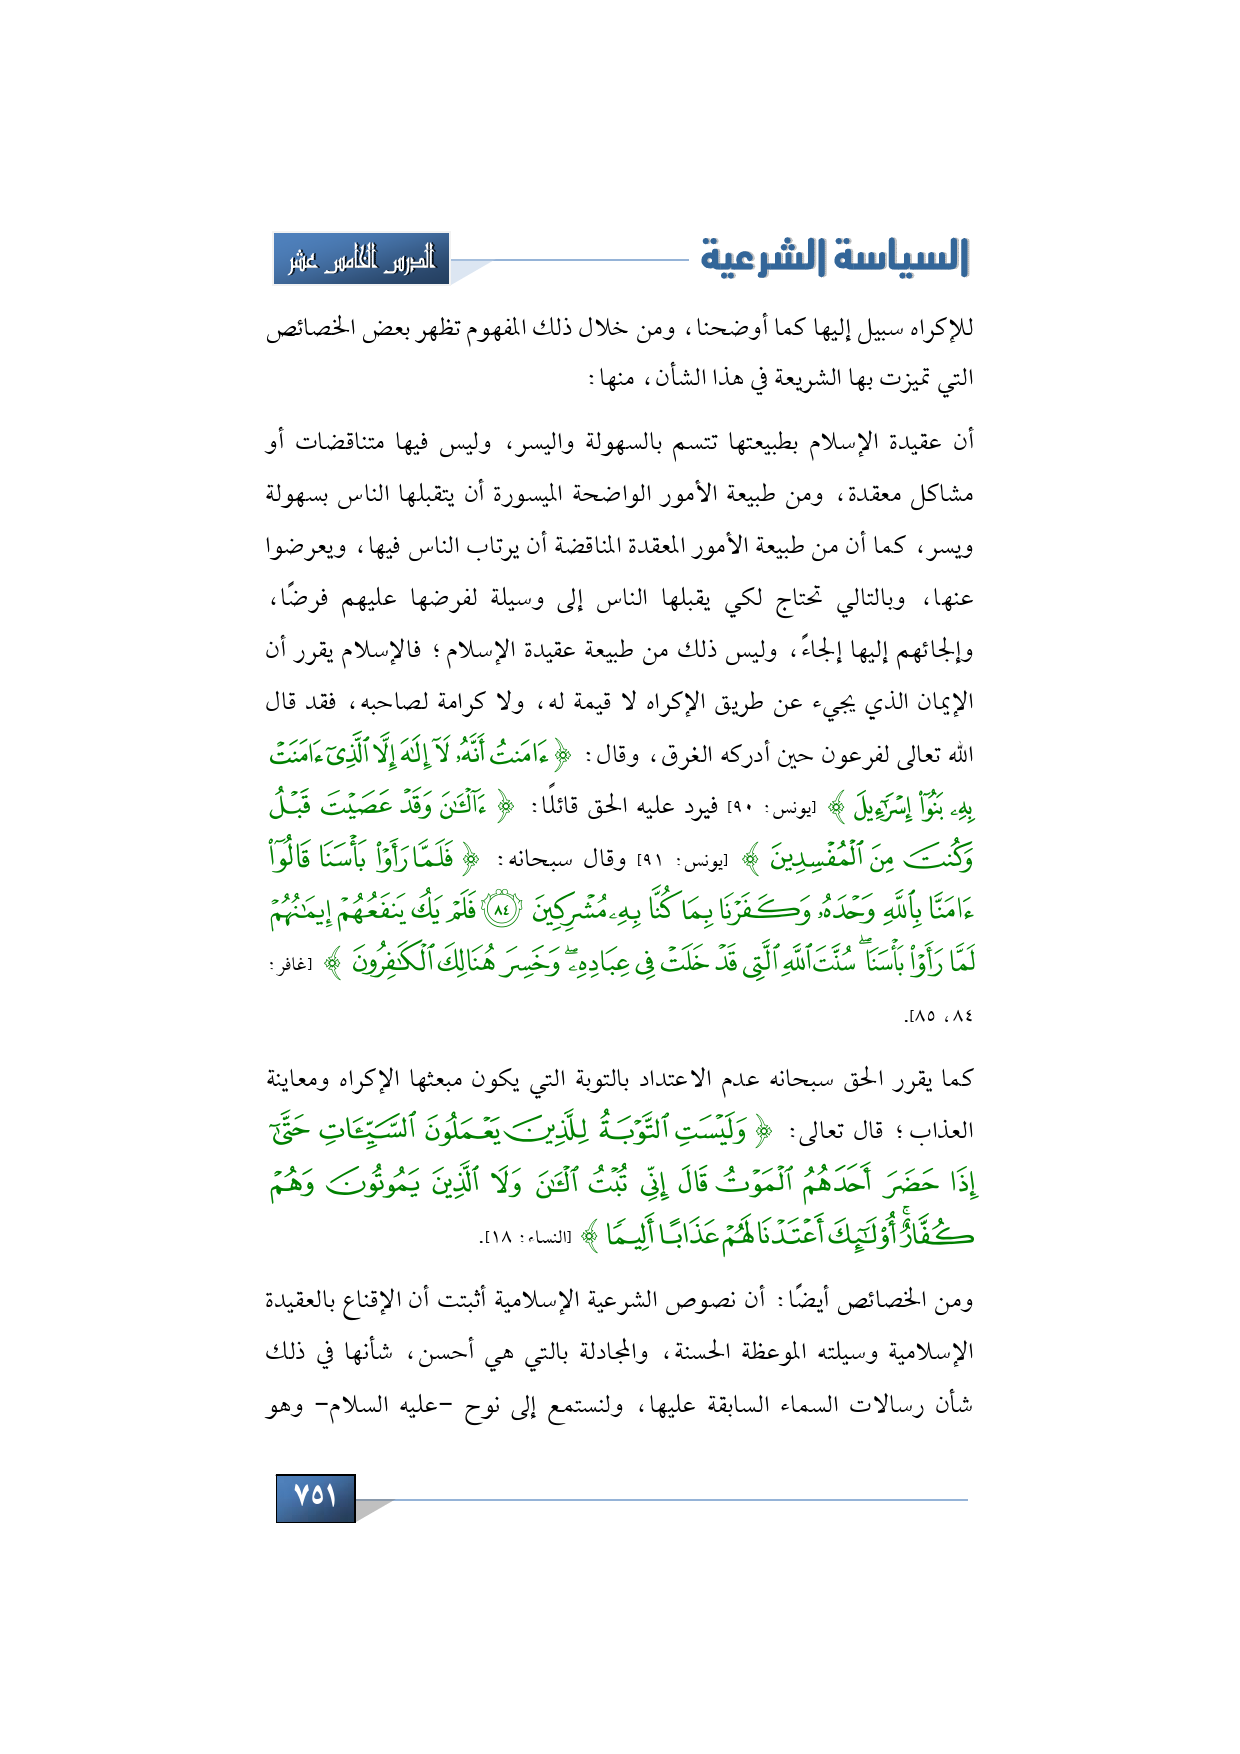 السياسة الشرعية
الدرس الخامس عشر
للإكراه سبيل إليها كما أوضحنا، ومن خلال ذلك المفهوم تظهر بعض الخصائص
التي تميزت بها الشريعة في هذا الشأن، منها:
أن عقيدة الإسلام بطبيعتها تتسم بالسهولة واليسر، وليس فيها متناقضات أو
مشاكل معقدة، ومن طبيعة الأمور الواضحة الميسورة أن يتقبلها الناس بسهولة
ويسر، كما أن من طبيعة الأمور المعقدة المناقضة أن يرتاب الناس فيها، ويعرضوا
عنها، وبالتالي تحتاج لكي يقبلها الناس إلى وسيلة لفرضها عليهم فرضًا،
وإلجائهم إليها إلجاءً، وليس ذلك من طبيعة عقيدة الإسلام؛ فالإسلام يقرر أن
الإيمان الذي يجيء عن طريق الإكراه لا قيمة له، ولا كرامة لصاحبه، فقد قال
الله تعالى لفرعون حين أدركه الغرق، وقال: ﴿ ءَامَنتُ أَنَّهُۥ لَآ إِلَٰهَ إِلَّا ٱلَّذِىٓ ءَامَنَتْ
بِهِۦ بَنُوٓا۟ إِسْرَٰٓءِيلَ ﴾ [يونس: ٩٠] فيرد عليه الحق قائلًا: ﴿ ءَآلْـَٰٔنَ وَقَدْ عَصَيْتَ قَبْلُ
وَكُنتَ مِنَ ٱلْمُفْسِدِينَ ﴾ [يونس: ٩١] وقال سبحانه: ﴿ فَلَمَّا رَأَوْا۟ بَأْسَنَا قَالُوٓا۟
ءَامَنَّا بِٱللَّهِ وَحْدَهُۥ وَكَفَرْنَا بِمَا كُنَّا بِهِۦ مُشْرِكِينَ ٨٤ فَلَمْ يَكُ يَنفَعُهُمْ إِيمَٰنُهُمْ
لَمَّا رَأَوْا۟ بَأْسَنَا ۖ سُنَّتَ ٱللَّهِ ٱلَّتِى قَدْ خَلَتْ فِى عِبَادِهِۦ ۖ وَخَسِرَ هُنَالِكَ ٱلْكَٰفِرُونَ ﴾ [غافر:
٨٤، ٨٥].
كما يقرر الحق سبحانه عدم الاعتداد بالتوبة التي يكون مبعثها الإكراه ومعاينة
العذاب؛ قال تعالى: ﴿ وَلَيْسَتِ ٱلتَّوْبَةُ لِلَّذِينَ يَعْمَلُونَ ٱلسَّيِّـَٔاتِ حَتَّىٰٓ
إِذَا حَضَرَ أَحَدَهُمُ ٱلْمَوْتُ قَالَ إِنِّى تُبْتُ ٱلْـَٰٔنَ وَلَا ٱلَّذِينَ يَمُوتُونَ وَهُمْ
كُفَّارٌ ۚ أُو۟لَٰٓئِكَ أَعْتَدْنَا لَهُمْ عَذَابًا أَلِيمًا ﴾ [النساء: ١٨].
ومن الخصائص أيضًا: أن نصوص الشرعية الإسلامية أثبتت أن الإقناع بالعقيدة
الإسلامية وسيلته الموعظة الحسنة، والمجادلة بالتي هي أحسن، شأنها في ذلك
شأن رسالات السماء السابقة عليها، ولنستمع إلى نوح -عليه السلام- وهو
٧٥١